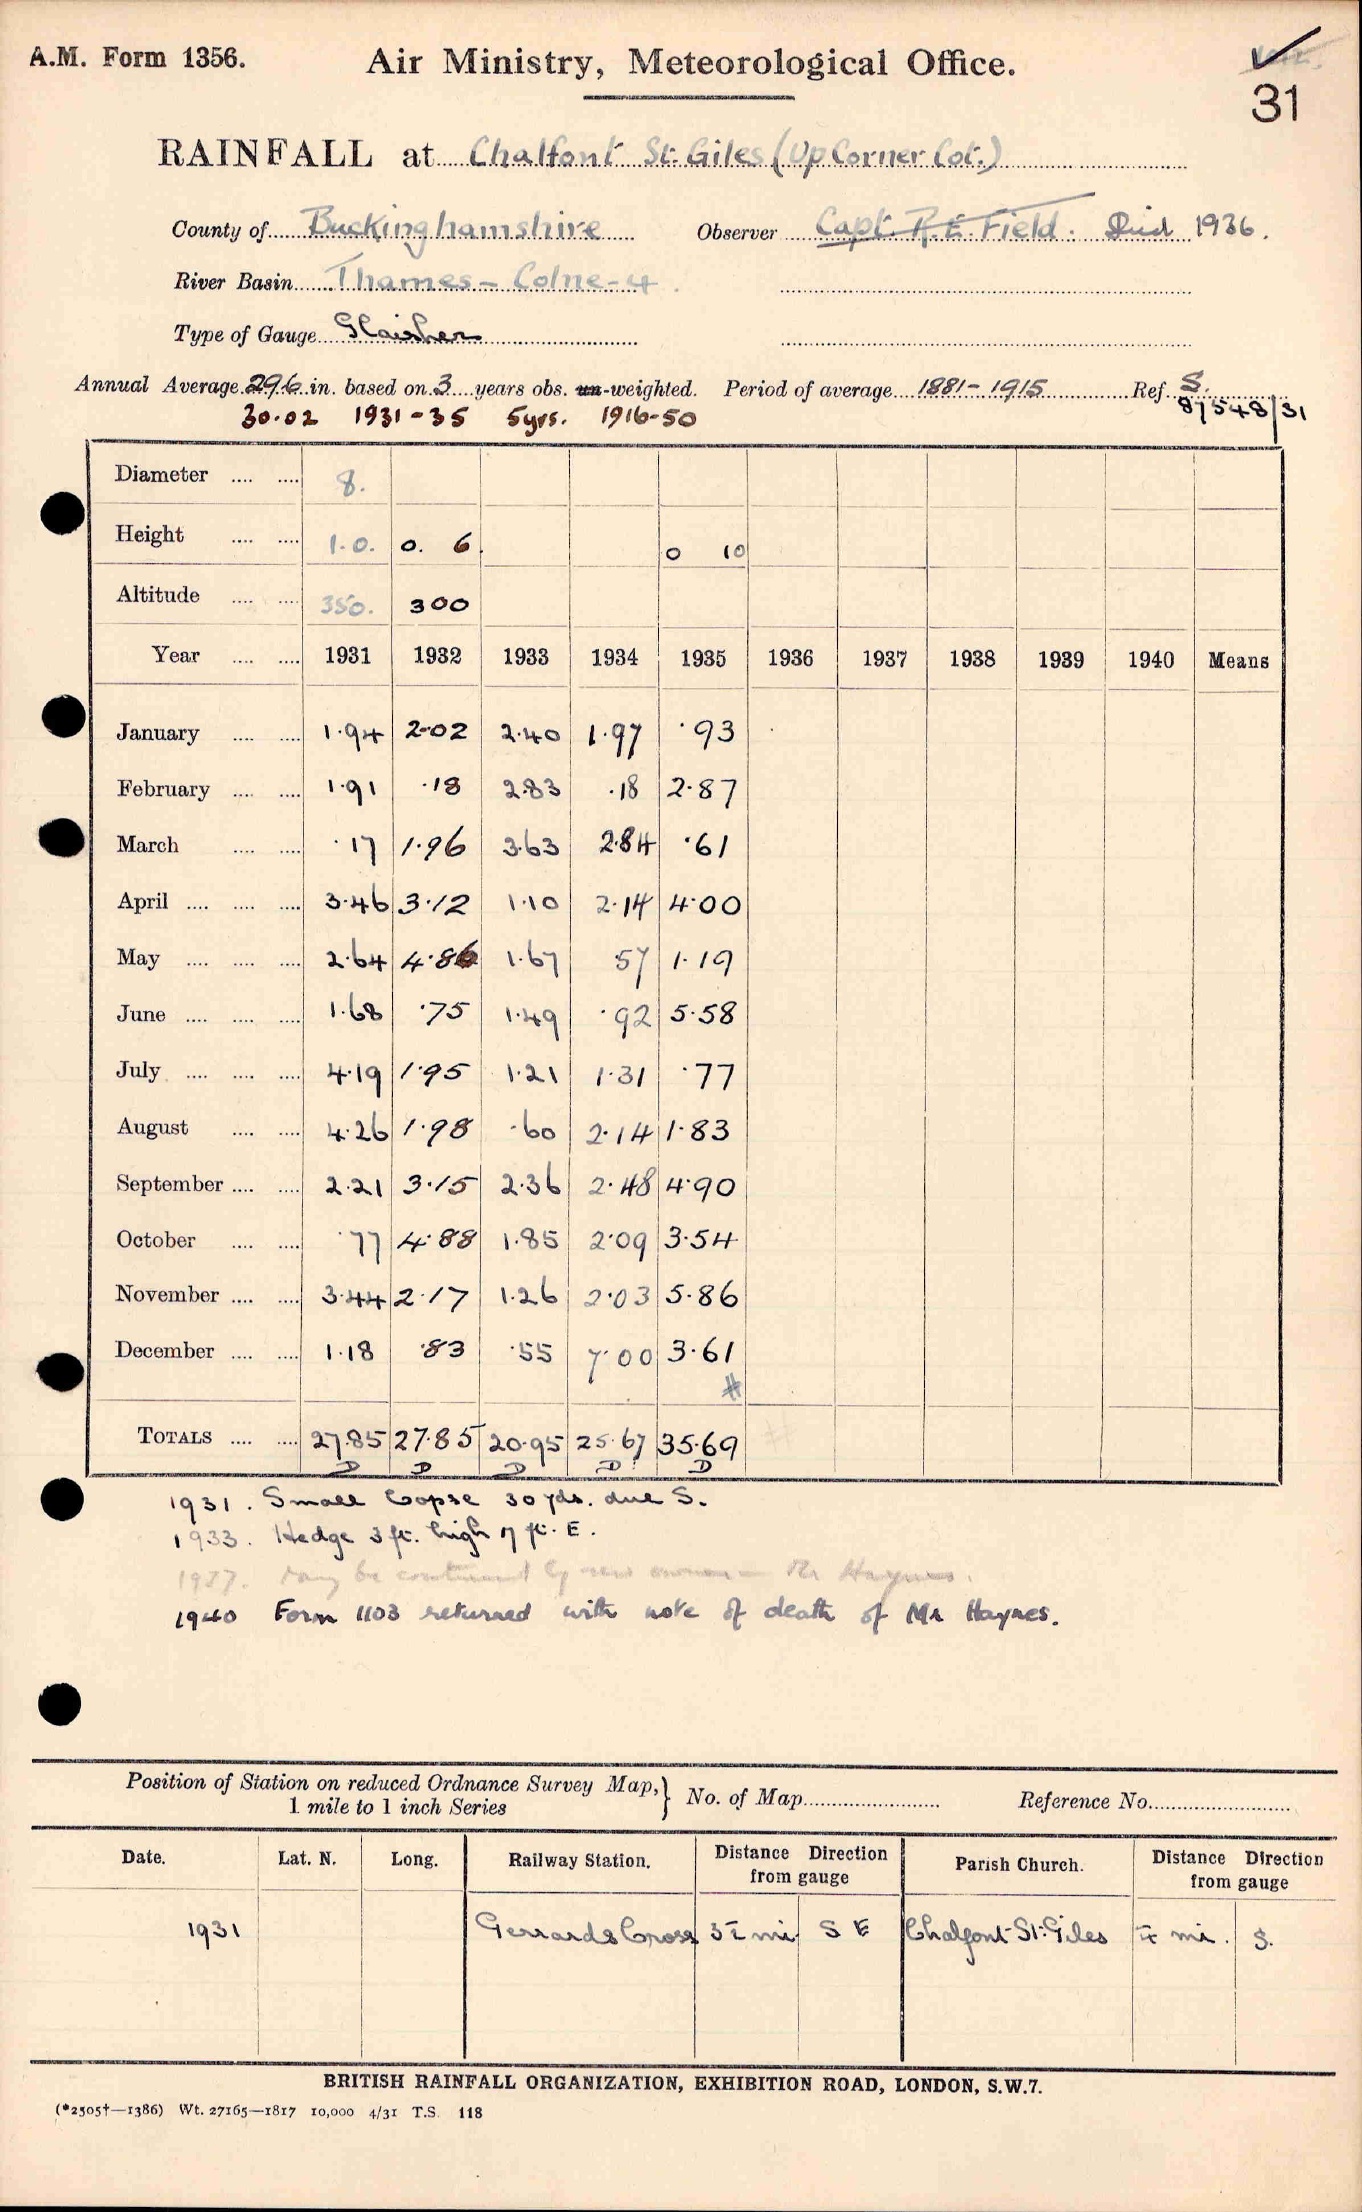 A.M. Form 1356.
Air Ministry, Meteorological Office.
31
RAINFALL at Chalfont St. Giles (Up Corner Cot.)
County of Buckinghamshire Observer Capt. R. E. Field. Died 1936.
River Basin Thames - Colne - 4.
Type of Gauge Glaisher
Annual Average 29.6 in. based on 3 years obs. un-weighted. Period of average 1881-1915 Ref. S.
30.02 1931-35 5yrs. 1916-50 87548/31
Diameter 8.
Height 1.0. 0. 6. 0 10
Altitude 350. 300
Year 1931 1932 1933 1934 1935 1936 1937 1938 1939 1940 Means
January 1.94 2.02 2.40 1.97 .93
February 1.91 .18 2.83 .18 2.87
March .17 1.96 3.63 2.84 .61
April 3.46 3.12 1.10 2.14 4.00
May 2.64 4.86 1.67 57 1.19
June 1.68 .75 1.49 .92 5.58
July 4.19 1.95 1.21 1.31 .77
August 4.26 1.98 .60 2.14 1.83
September 2.21 3.15 2.36 2.48 4.90
October .77 4.88 1.85 2.09 3.54
November 3.44 2.17 1.26 2.03 5.86
December 1.18 .83 .55 7.00 3.61
#
TOTALS 27.85 27.85 20.95 25.67 35.69
D D D D D
1931. Small Copse 30 yds. due S.
1933. Hedge 3 ft. high 7 ft. E.
1937. May be continued by new owner - Mr Haynes.
1940 Form 1103 returned with note of death of Mr Haynes.
Position of Station on reduced Ordnance Survey Map, } No. of Map Reference No.
1 mile to 1 inch Series
Date. Lat. N. Long. Railway Station. Distance Direction from gauge Parish Church. Distance Direction from gauge
1931 Gerrards Cross mi S E Chalfont St. Giles mi. S.
BRITISH RAINFALL ORGANIZATION, EXHIBITION ROAD, LONDON, S.W.7.
(*2505†—1386) Wt. 27165—1817 10,000 4/31 T.S. 118